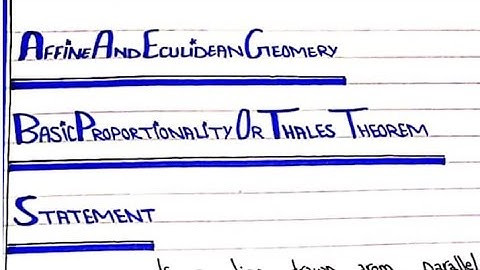 Affine And Eculidean Geomery
Basic Proportionality Or Thales Theorem
Statement
drawn parallel